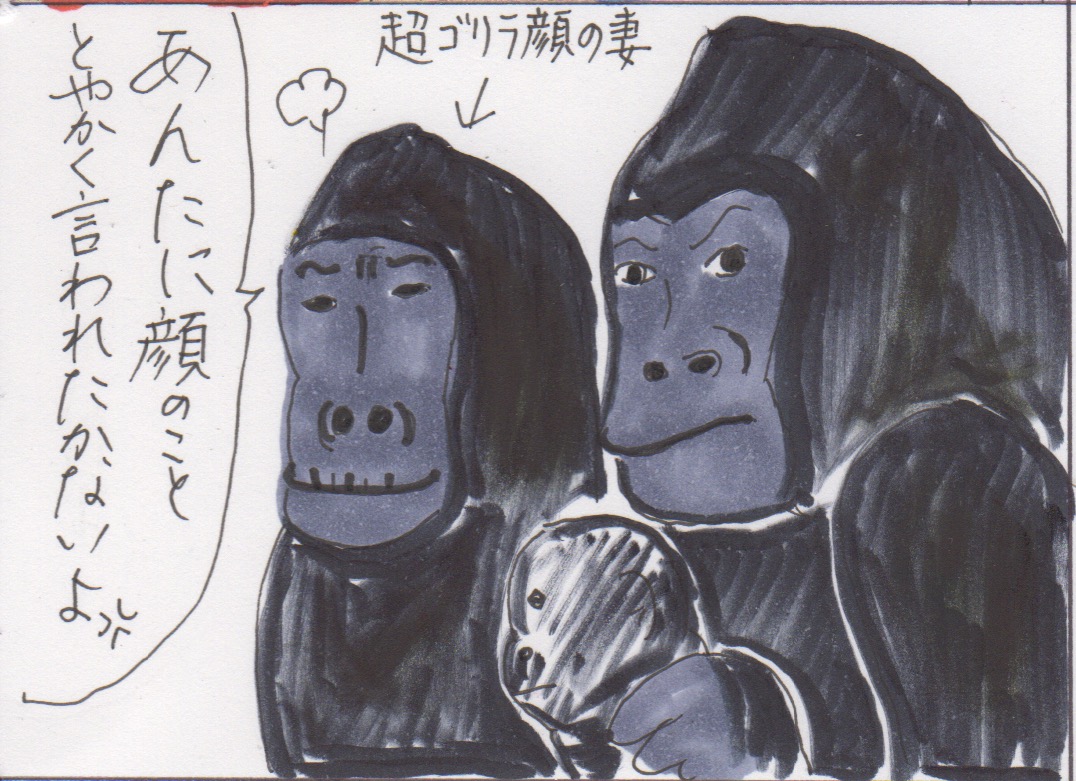 超ゴリラ顔の妻
あんたに顔のこと
とやかく言われたかないよ